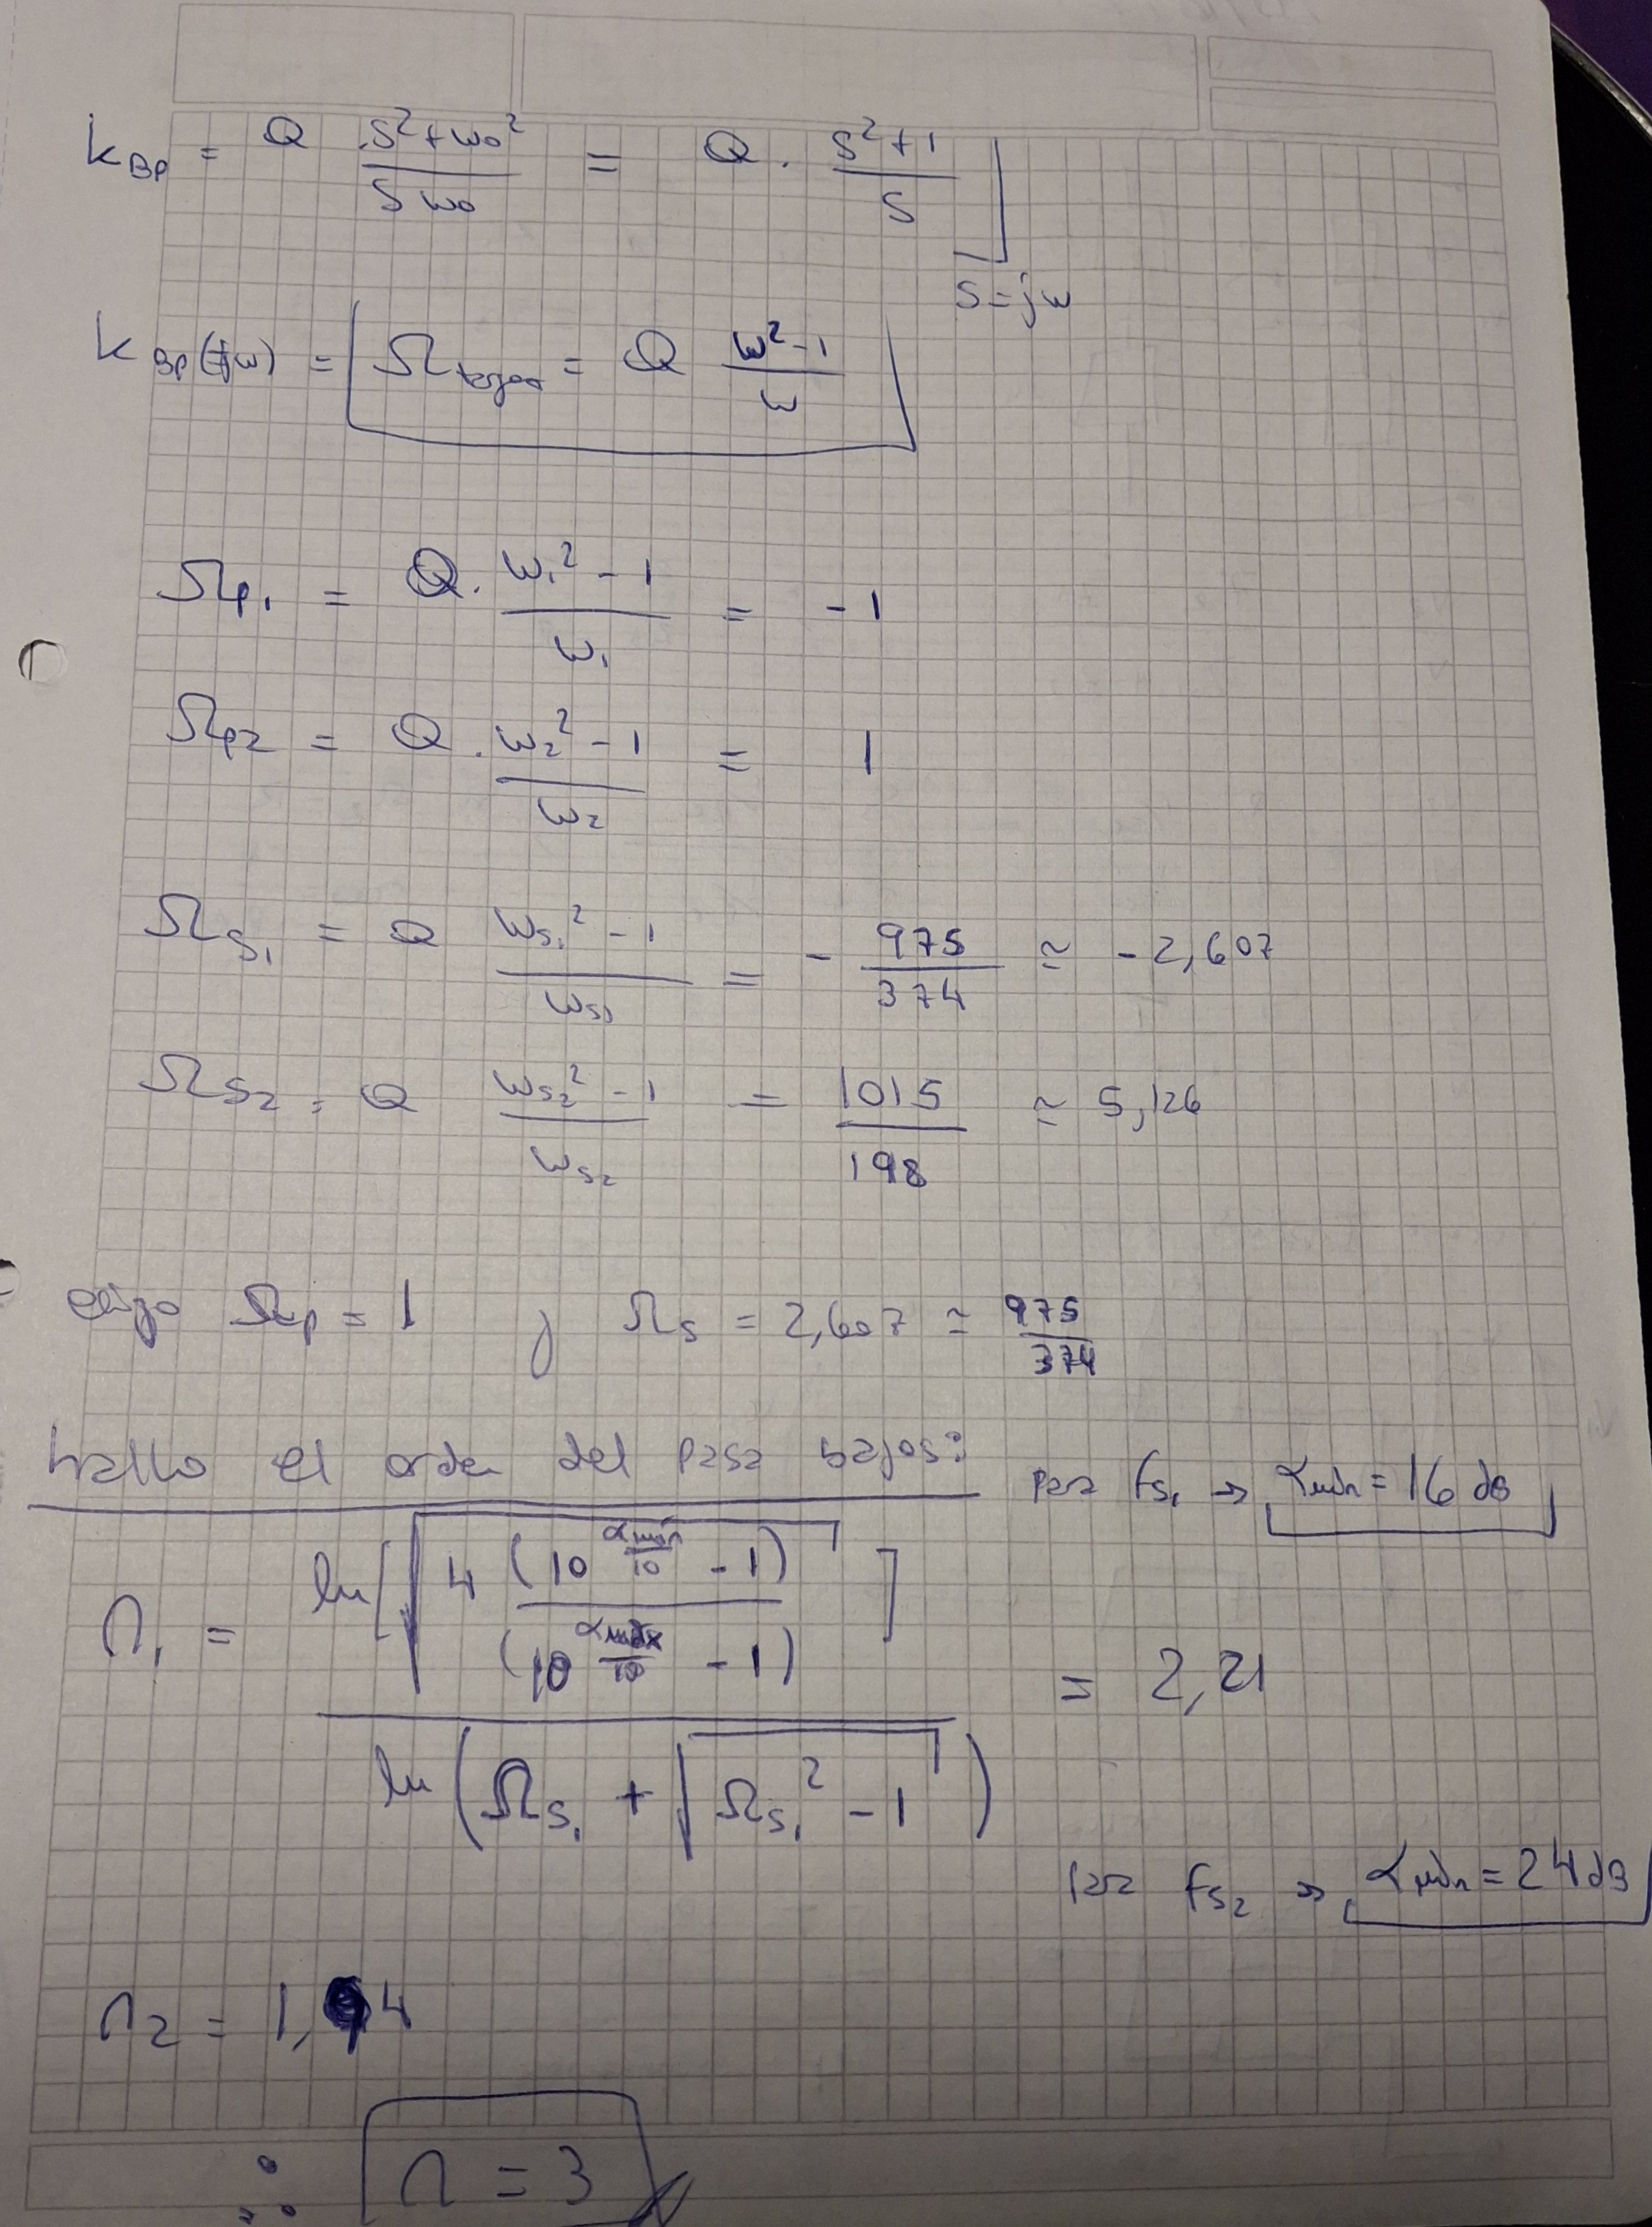 K_BP = Q (s² + ω₀²)/(s ω₀) = Q · (s² + 1)/s |_{s=jω}
K_BP(jω) = Ω = Q (ω² - 1)/ω
Ω_p1 = Q · (ω₁² - 1)/ω₁ = -1
Ω_p2 = Q · (ω₂² - 1)/ω₂ = 1
Ω_s1 = Q (ω_s1² - 1)/ω_s1 = - 975/374 ≃ -2,607
Ω_s2 = Q (ω_s2² - 1)/ω_s2 = 1015/198 ≃ 5,126
elijo Ω_p = 1 y Ω_s = 2,607 ≃ 975/374
hallo el orden del pasa bajos:
para f_s1 → α_min = 16 dB
n₁ = ln[√(4 (10^(α_min/10) - 1)/(10^(α_max/10) - 1))] / ln(Ω_s1 + √(Ω_s1² - 1)) = 2,21
para f_s2 → α_min = 24 dB
n₂ = 1,94
∴ n = 3